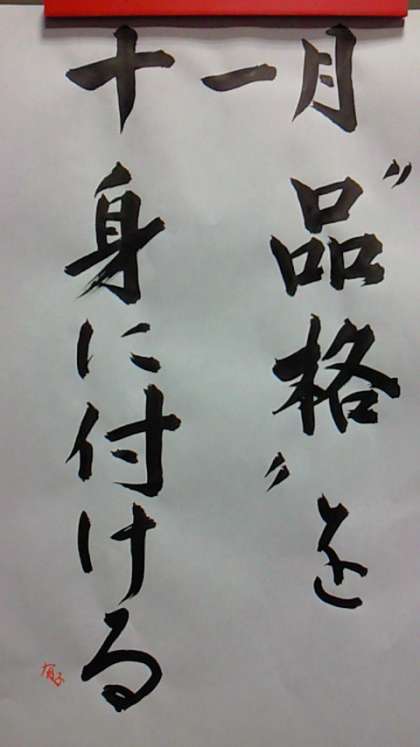 十一月
〝品格〟を
身に付ける